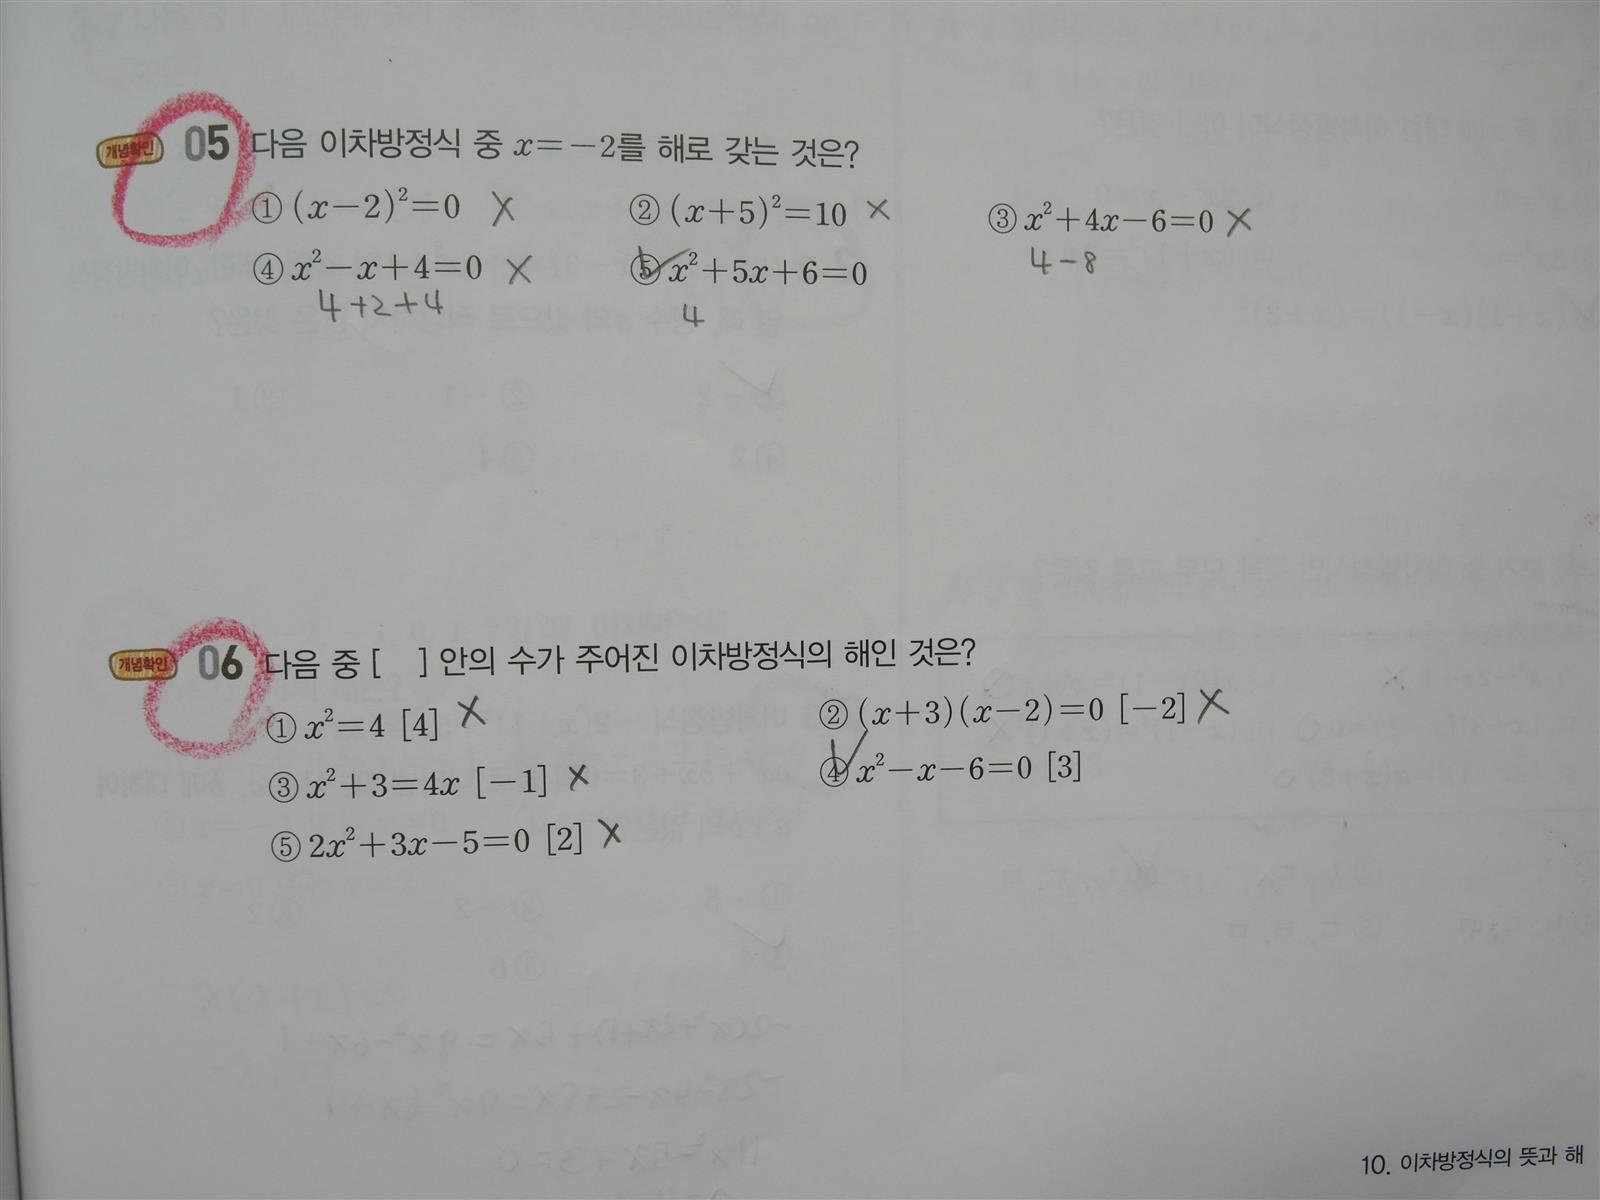 개념확인 05 다음 이차방정식 중 x=-2를 해로 갖는 것은?
① (x-2)²=0 X ② (x+5)²=10 X ③ x²+4x-6=0 X
4-8
④ x²-x+4=0 X ⑤ x²+5x+6=0
4+2+4 4
개념확인 06 다음 중 [ ] 안의 수가 주어진 이차방정식의 해인 것은?
① x²=4 [4] X ② (x+3)(x-2)=0 [-2] X
③ x²+3=4x [-1] X ④ x²-x-6=0 [3]
⑤ 2x²+3x-5=0 [2] X
10. 이차방정식의 뜻과 해